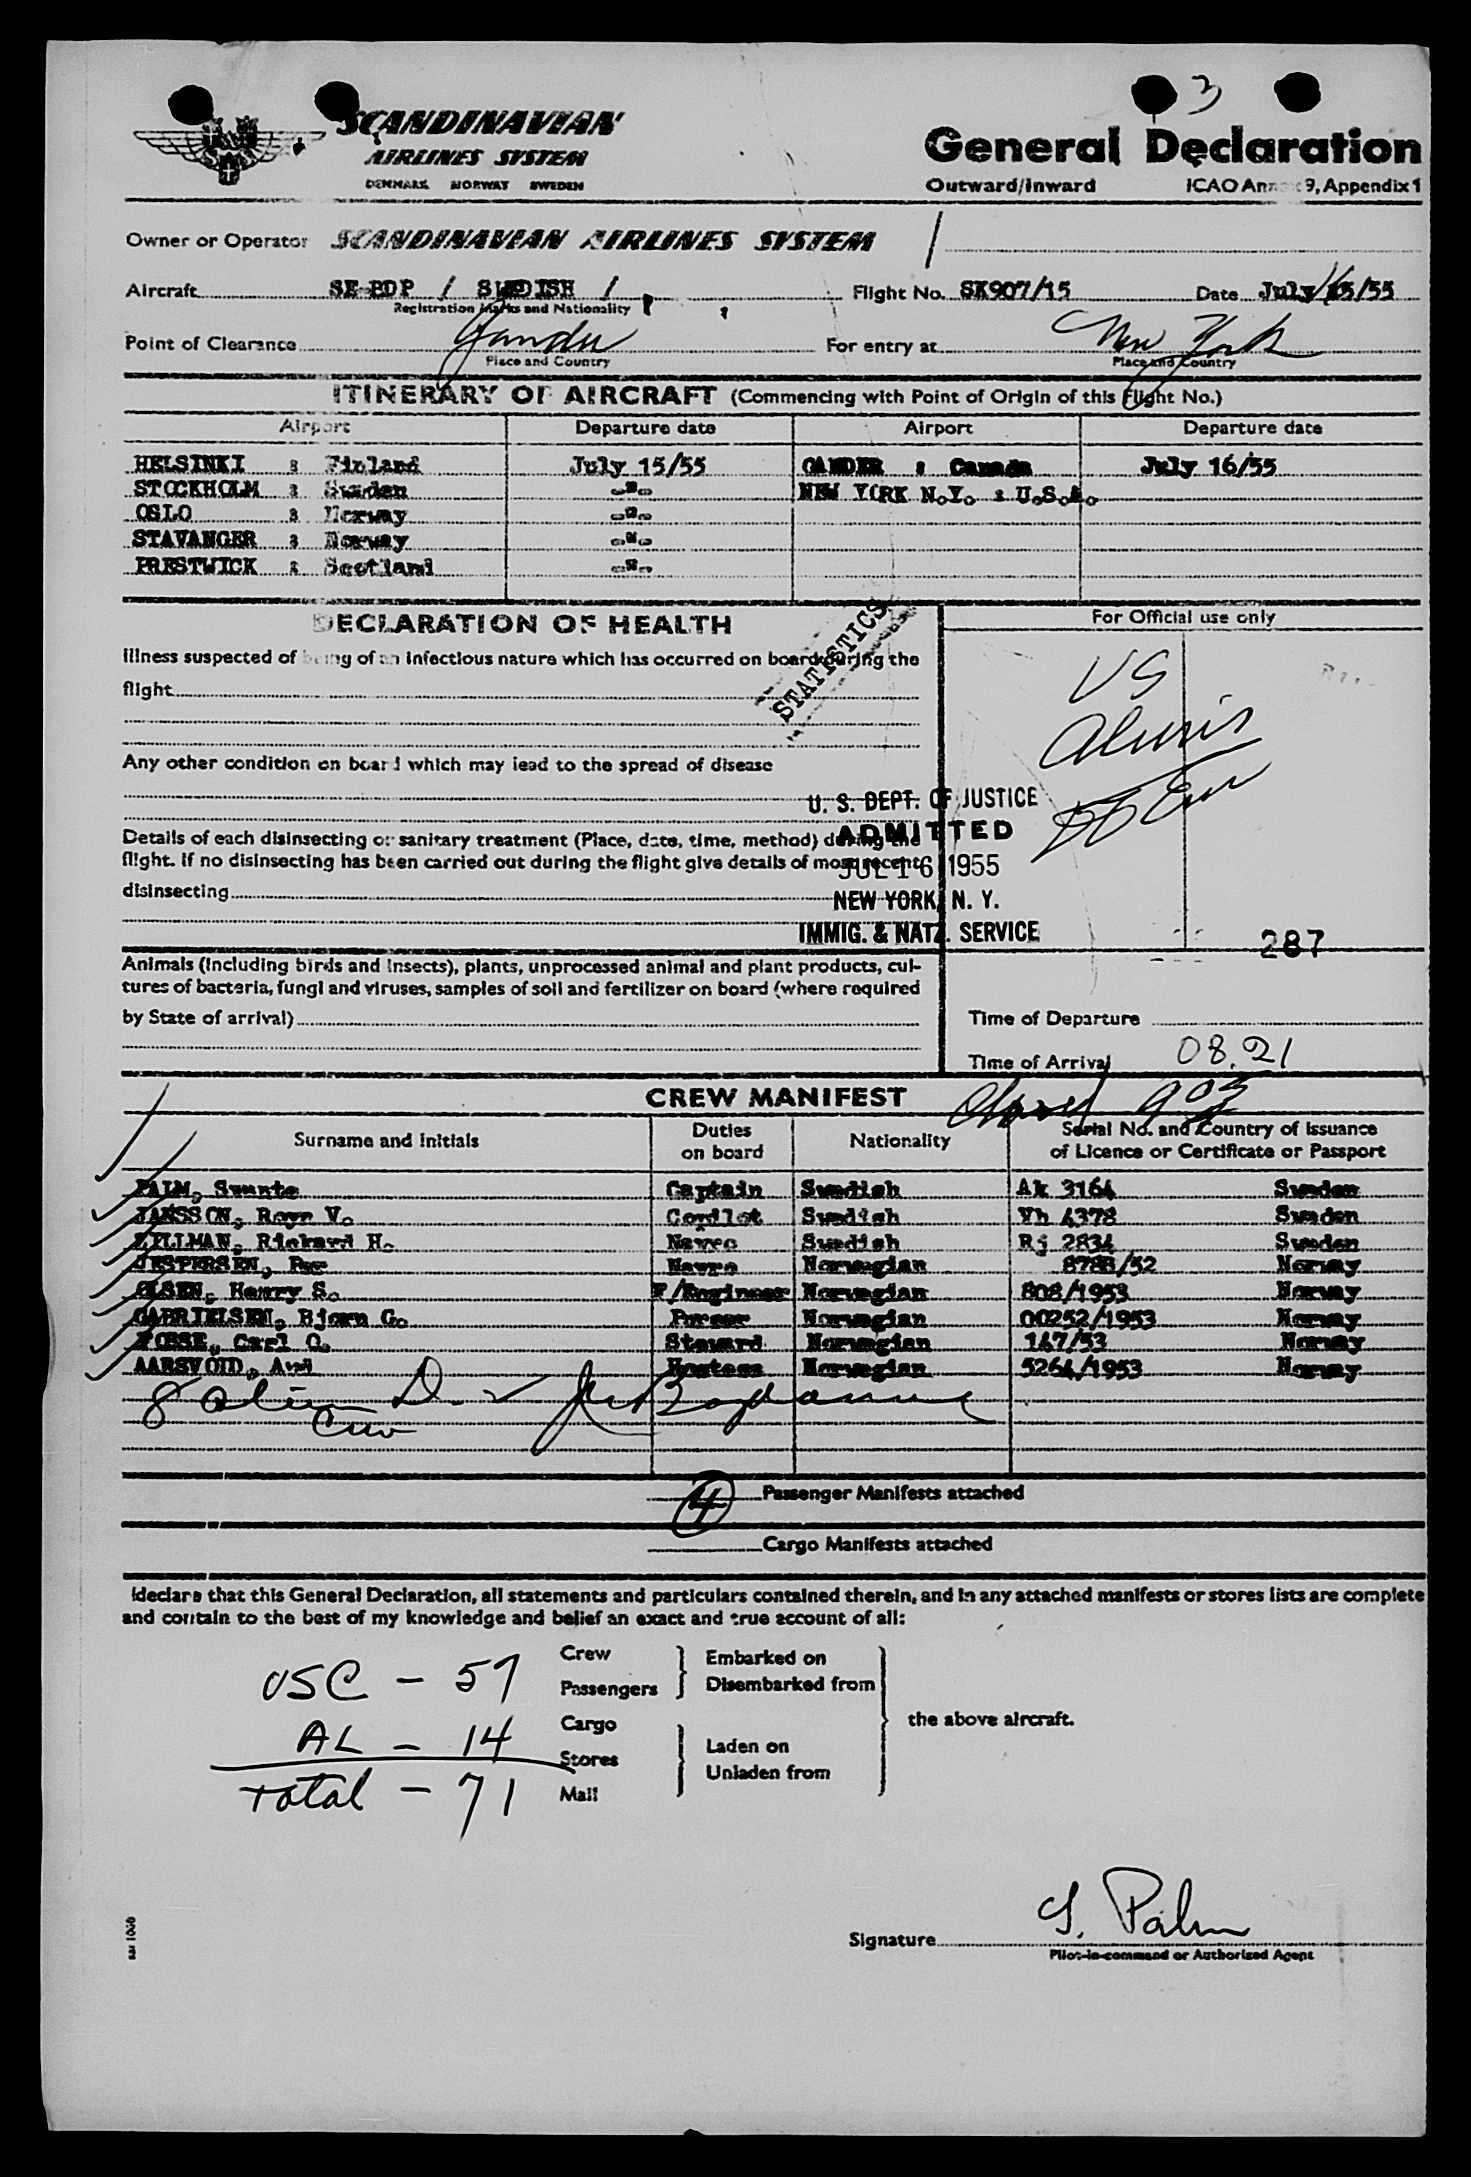 3
SCANDINAVIAN
AIRLINES SYSTEM
DENMARK NORWAY SWEDEN
General Declaration
Outward/Inward ICAO Annex 9, Appendix 1
Owner or Operator SCANDINAVIAN AIRLINES SYSTEM /
Aircraft SE-BDP / SWEDISH / Flight No. SK907/15 Date July 15/55
Registration Marks and Nationality
Point of Clearance Gander For entry at New York
Place and Country Place and Country
ITINERARY OF AIRCRAFT (Commencing with Point of Origin of this Flight No.)
Airport Departure date Airport Departure date
HELSINKI : Finland July 15/55 GANDER : Canada July 16/55
STOCKHOLM : Sweden -"- NEW YORK N.Y. : U.S.A.
OSLO : Norway -"-
STAVANGER : Norway -"-
PRESTWICK : Scotland -"-
DECLARATION OF HEALTH
For Official use only
Illness suspected of being of an infectious nature which has occurred on board during the
flight
STATISTICS
US
Any other condition on board which may lead to the spread of disease
U. S. DEPT. OF JUSTICE
ADMITTED
JUL 16 1955
NEW YORK, N. Y.
IMMIG. & NATZ. SERVICE
Details of each disinsecting or sanitary treatment (Place, date, time, method) during the
flight. If no disinsecting has been carried out during the flight give details of most recent
disinsecting
287
Animals (including birds and insects), plants, unprocessed animal and plant products, cul-
tures of bacteria, fungi and viruses, samples of soil and fertilizer on board (where required
by State of arrival)
Time of Departure
Time of Arrival 08.21
CREW MANIFEST
903
Surname and Initials Duties on board Nationality Serial No. and Country of Issuance of Licence or Certificate or Passport
PALM, Svante Captain Swedish Ak 3164 Sweden
JANSSON, Roger V. Copilot Swedish Vh 4378 Sweden
KILLMAN, Rickard H. Navro Swedish Rj 2834 Sweden
JESPERSEN, Per Navro Norwegian 8788/52 Norway
OLSEN, Henry S. F/Engineer Norwegian 808/1953 Norway
GABRIELSEN, Bjorn G. Purser Norwegian 00252/1953 Norway
FOSSE, Carl O. Steward Norwegian 147/53 Norway
AARSVOLD, Hostess Norwegian 5264/1953 Norway
8 alien D.
Crew
4 Passenger Manifests attached
Cargo Manifests attached
I declare that this General Declaration, all statements and particulars contained therein, and in any attached manifests or stores lists are complete
and contain to the best of my knowledge and belief an exact and true account of all:
Crew
Passengers
Cargo
Stores
Mail
Embarked on
Disembarked from
Laden on
Unladen from
the above aircraft.
USC - 57
AL - 14
Total - 71
Signature S. Palm
Pilot-in-command or Authorized Agent